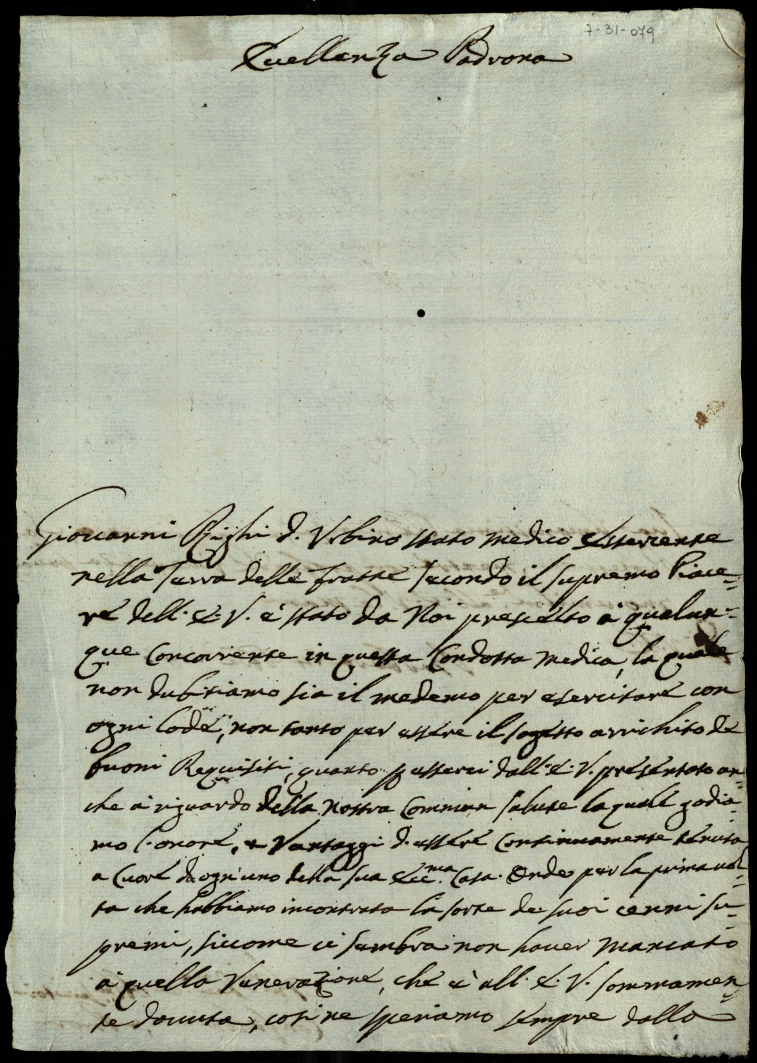 7-31-079
Eccellenza Padrona
Giovanni Righi d'Urbino stato medico esercente
nella Terra delle Fratte secondo il supremo Piace=
re dell'E.V. è stato da Noi prescelto à qualun=
que Concorrente in questa Condotta medica, la quale
non dubitiamo sia il medemo per esercitare con
ogni lode, non tanto per essere il sogetto arrichito de
buoni Requisiti, quanto p esserci dall'E.V. presentato an=
che à riguardo della nostra Commun salute la quale godia=
mo l'onore, e Vantaggi d'essere continuamente tenuta
a Cuore da ogn'uno della sua Ecc.ma Casa. Onde per la prima vol=
ta che habbiamo incontrata la sorte de suoi cenni su=
premi, siccome ci sembra non haver mancato
à quella Venerazione, che è all'E.V. sommamen=
te dovuta, così ne speriamo sempre dalla